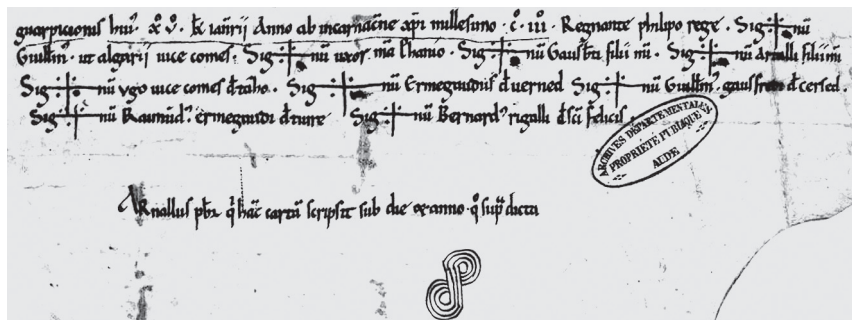 guarpicionis huiꝰ. xv. kł ianrii Anno ab incarnacne xpi millesimo. c̊. iiii̊. Regnante philipo rege. Sig nū
Guillmꝰ. ut algarii uice comes. Sig nū uxor mā. Sig nū filii mī. Sig nū Arnalli filii mī
Sig nū ugo uice comes. Sig nū Ermegaudus d uerned Sig nū Guillmꝰ. gausfredi d cersed.
Sig nū Raimūdꝰ. ermegaudi d turre Sig nū Bernardꝰ rigalli d sci felicis
ARCHIVES DÉPARTEMENTALES
PROPRIETE PUBLIQUE
AUDE
ARnallus pbr q̄ hāc cartā scripsit sub die anno q̊ sup dicta